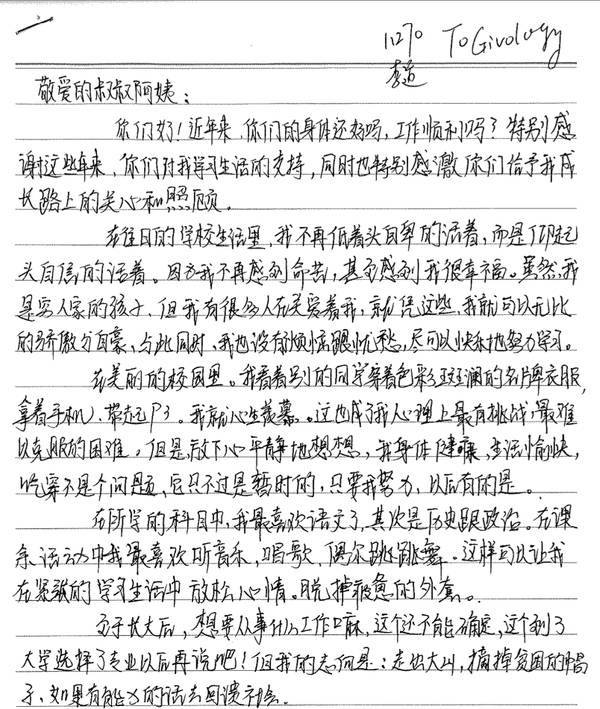 11270 To Givology
李超
敬爱的叔叔阿姨：
你们好！近年来你们的身体还好吗，工作顺利吗？特别感
谢这些年来，你们对我学习生活的支持，同时也特别感激你们给予我成
长路上的关心和照顾。
在往日的学校生活里，我不再低着头自卑的活着，而是仰起
头自信的活着。因为我不再感到命苦，甚至感到我很幸福。虽然我
是穷人家的孩子，但我有很多人在关爱着我，就凭这些，我就可以无比
的骄傲与自豪，与此同时，我也没有烦恼跟忧愁。尽可以快乐地努力学习。
在美丽的校园里。我看着别的同学穿着色彩斑斓的名牌衣服，
拿着手机、带起P3。我就心生羡慕。这也成了我心理上最有挑战，最难
以克服的困难。但是放下心平静地想想，我身体健康，生活愉快，
吃穿不是个问题，它只不过是暂时的，只要我努力，以后有的是。
在所学的科目中，我最喜欢语文了，其次是历史跟政治。在课
余活动中我最喜欢听音乐，唱歌，偶尔跳跳舞。这样可以让我
在紧张的学习生活中放松心情。脱掉疲惫的外套。
至于长大后，想要从事什么工作嘛，这个还不能确定，这个到了
大学选择了专业以后再说吧！但我的志向是：走出大山，摘掉贫困的帽
子，如果有能力的话去回馈社会。